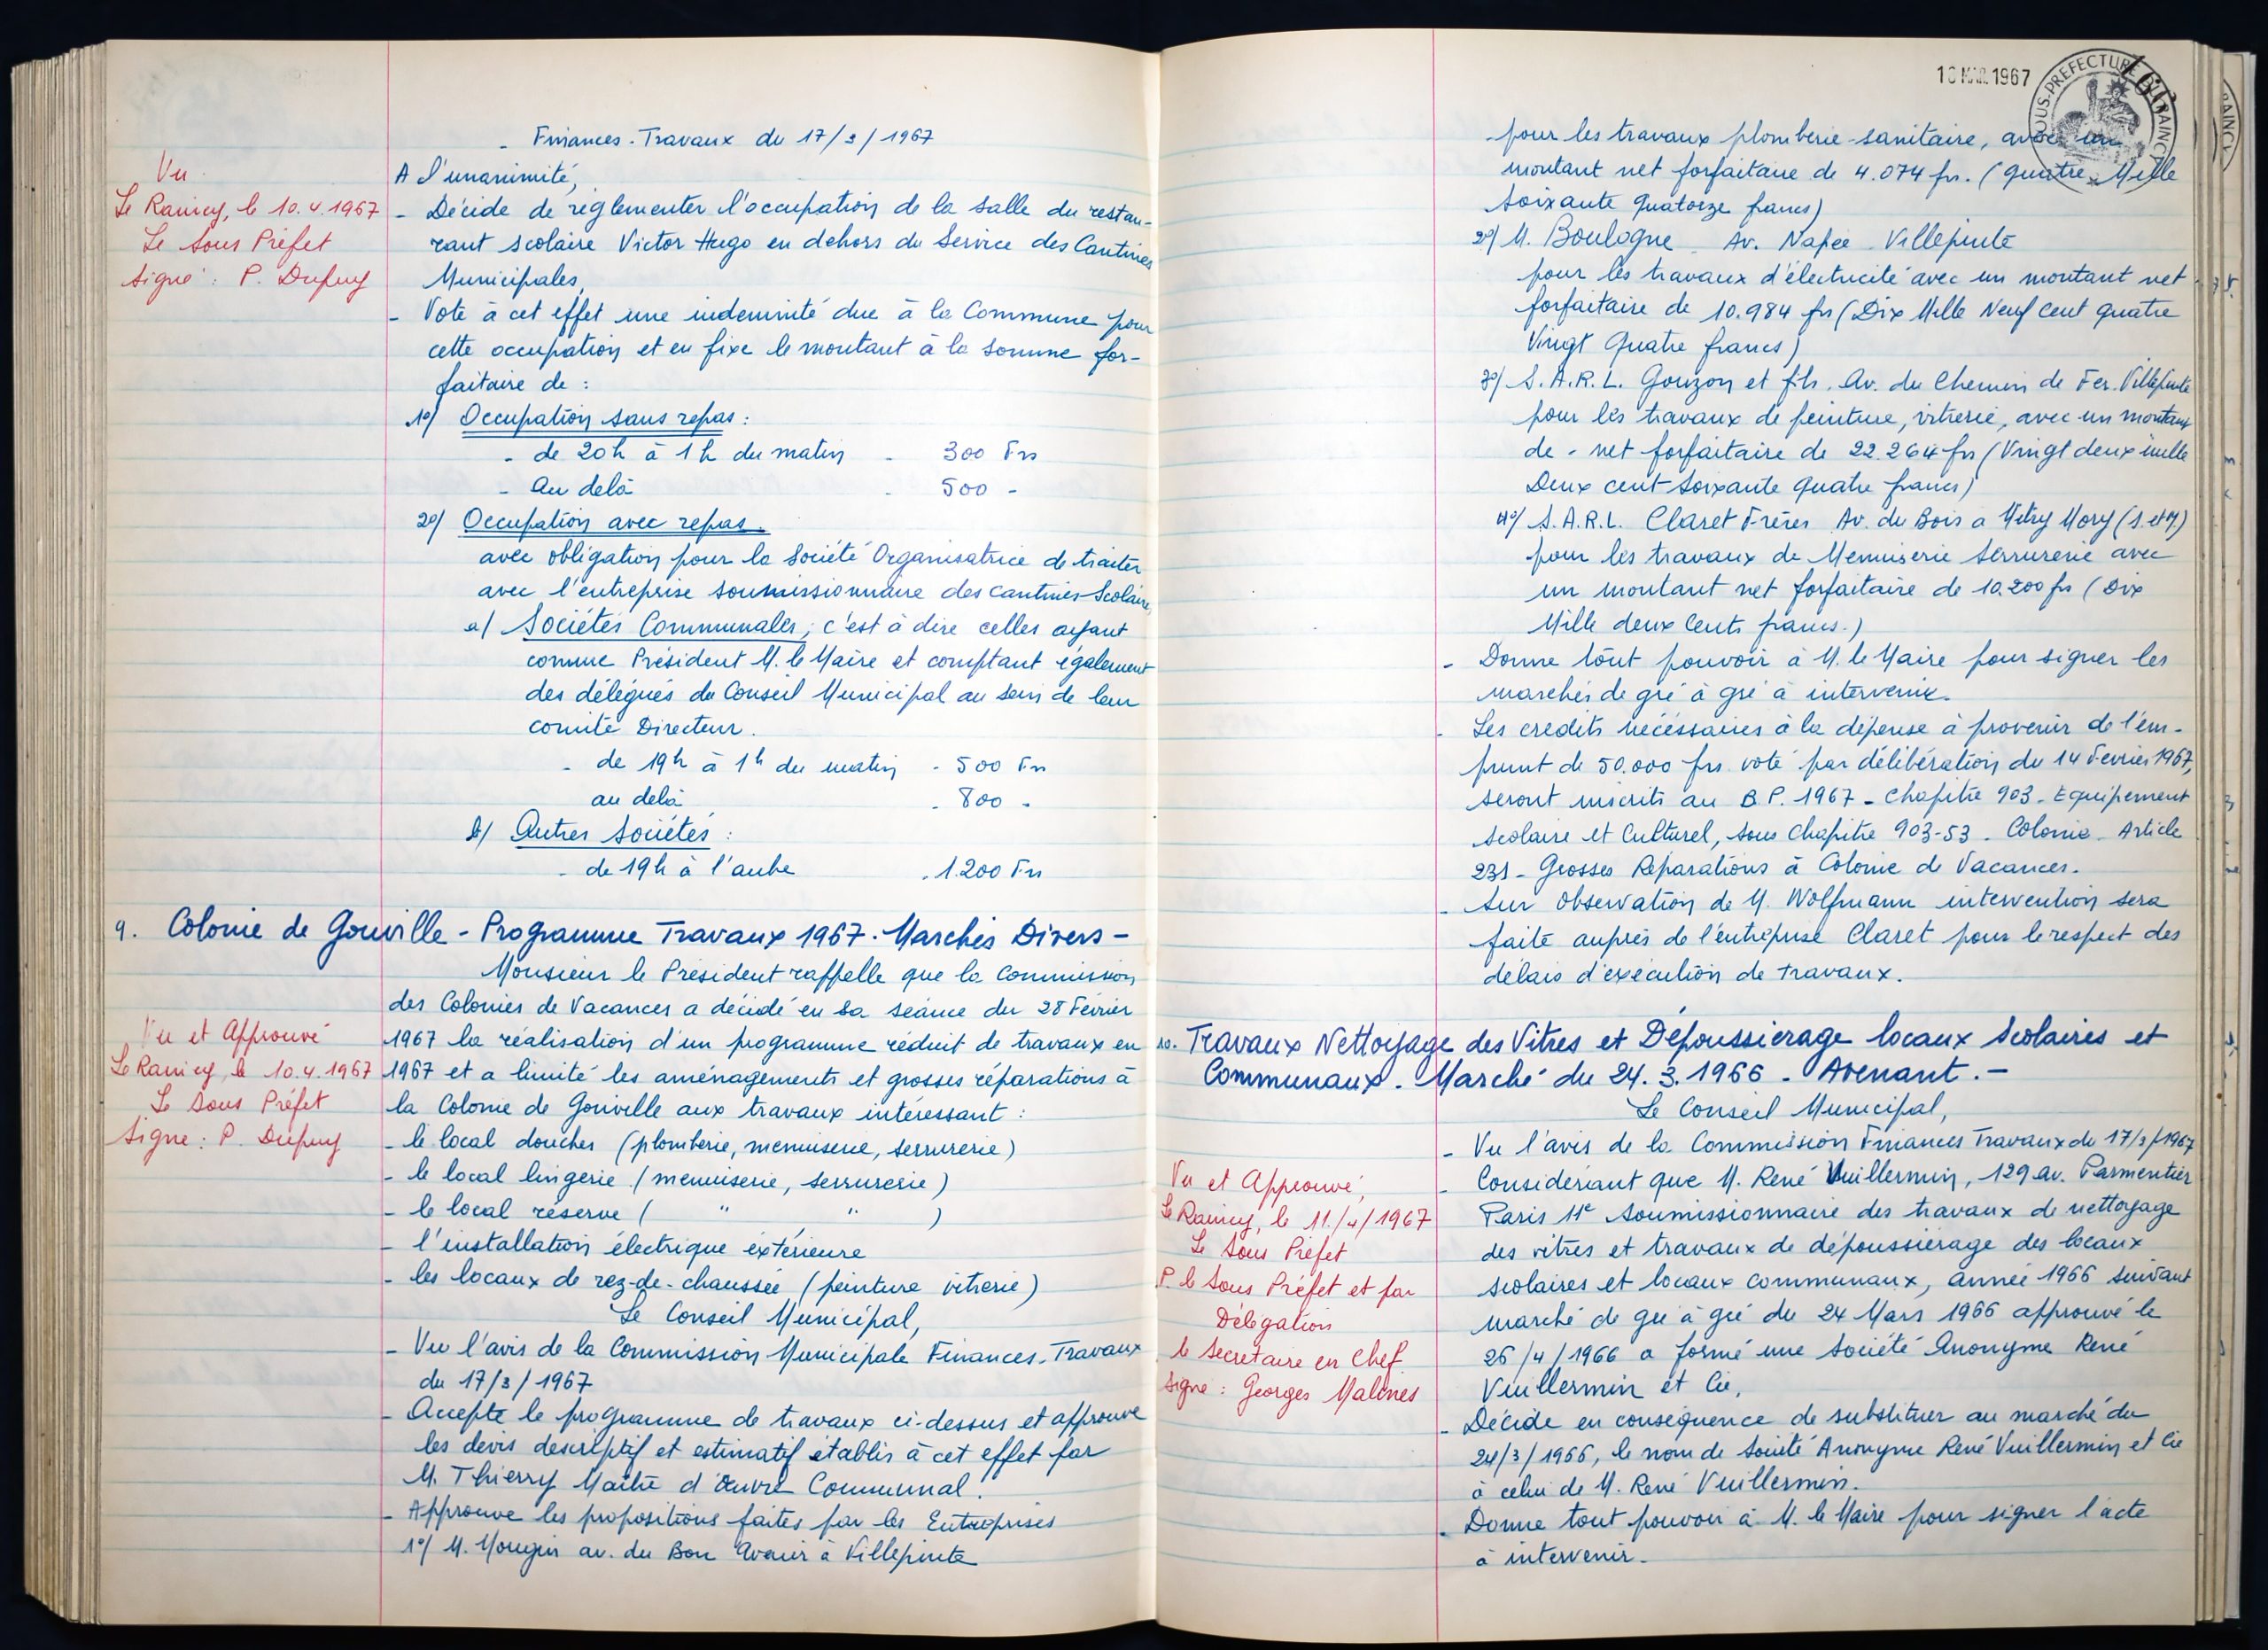 - Finances. Travaux du 17/3/1967
Vu
Le Raincy, le 10.4.1967
Le Sous Préfet
Signé : P. Dupuy
A l'unanimité,
- Décide de réglementer l'occupation de la salle du restau-
rant scolaire Victor Hugo en dehors du Service des Cantines
Municipales,
- Vote à cet effet une indemnité due à la Commune pour
cette occupation et en fixe le montant à la somme for-
faitaire de :
1°/ Occupation sans repas :
- de 20h à 1h du matin - 300 Frs
- Au delà - 500 -
2°/ Occupation avec repas.
avec obligation pour la Société Organisatrice de traiter
avec l'entreprise soumissionnaire des cantines Scolaires
a/ Sociétés Communales, c'est à dire celles ayant
comme Président M. le Maire et comptant également
des délégués du Conseil Municipal au sein de leur
comité Directeur.
- de 19h à 1h du matin - 500 Frs
au delà - 800 -
b/ Autres Sociétés :
- de 19h à l'aube - 1.200 Frs
9. Colonie de Gouville - Programme Travaux 1967. Marchés Divers -
Monsieur le Président rappelle que la Commission
des Colonies de Vacances a décidé en sa séance du 28 Février
1967 la réalisation d'un programme réduit de travaux en
1967 et a limité les aménagements et grosses réparations à
la Colonie de Gouville aux travaux intéressant :
Vu et Approuvé
Le Raincy, le 10.4.1967
Le Sous Préfet
Signé : P. Dupuy
- le local douches (plomberie, menuiserie, serrurerie)
- le local lingerie (menuiserie, serrurerie)
- le local réserve ( " " )
- l'installation électrique extérieure
- les locaux de rez-de-chaussée (peinture vitrerie)
Le Conseil Municipal,
- Vu l'avis de la Commission Municipale Finances. Travaux
du 17/3/1967
- Accepte le programme de travaux ci-dessus et approuve
les devis descriptif et estimatif établis à cet effet par
M. Thierry Maître d'Œuvre Communal.
- Approuve les propositions faites par les Entreprises
1°/ M. Mougin av. du Bon Avenir à Villepinte
1967
SOUS-PREFECTURE DU RAINCY
pour les travaux plomberie-sanitaire, avec un
montant net forfaitaire de 4.074 frs. (Quatre Mille
Soixante Quatorze francs)
2°/ M. Boulogne - Av. Napée - Villepinte
pour les travaux d'électricité avec un montant net
forfaitaire de 10.984 frs (Dix Mille Neuf cent quatre
Vingt Quatre francs)
3°/ S.A.R.L. Gouzon et fils. Av. du Chemin de Fer. Villepinte
pour les travaux de peinture, vitrerie, avec un montant
de - net forfaitaire de 22.264 frs (Vingt deux mille
Deux cent Soixante Quatre francs)
4°/ S.A.R.L. Claret Frères Av. du Bois à Mitry Mory (S. et M.)
pour les travaux de Menuiserie Serrurerie avec
un montant net forfaitaire de 10.200 frs (Dix
Mille deux Cents francs.)
- Donne tout pouvoir à M. le Maire pour signer les
marchés de gré à gré à intervenir.
- Les crédits nécéssaires à la dépense à provenir de l'em-
prunt de 50.000 frs. voté par délibération du 14 Février 1967,
seront inscrits au B.P. 1967 - Chapitre 903 - Equipement
scolaire et Culturel, sous Chapitre 903-53 - Colonie - Article
231 - Grosses Réparations à Colonie de Vacances.
- Sur Observation de M. Wolfmann intervention sera
faite auprès de l'entreprise Claret pour le respect des
délais d'exécution de travaux.
10. Travaux Nettoyage des Vitres et Dépoussiérage locaux Scolaires et
Communaux. Marché du 24.3.1966 - Avenant. -
Le Conseil Municipal,
- Vu l'avis de la Commission Finances Travaux du 17/3/1967
- Considérant que M. René Vuillermin, 129 av. Parmentier
Paris 11e soumissionnaire des travaux de nettoyage
des vitres et travaux de dépoussiérage des locaux
scolaires et locaux communaux, année 1966 suivant
marché de gré à gré du 24 Mars 1966 approuvé le
26/4/1966 a formé une Société Anonyme René
Vuillermin et Cie,
Vu et Approuvé,
Le Raincy, le 11/4/1967
Le Sous Préfet
P. le Sous Préfet et par
Délégation
le Secrétaire en Chef
Signé : Georges Malines
- Décide en conséquence de substituer au marché du
24/3/1966, le nom de Société Anonyme René Vuillermin et Cie
à celui de M. René Vuillermin.
- Donne tout pouvoir à M. le Maire pour signer l'acte
à intervenir.